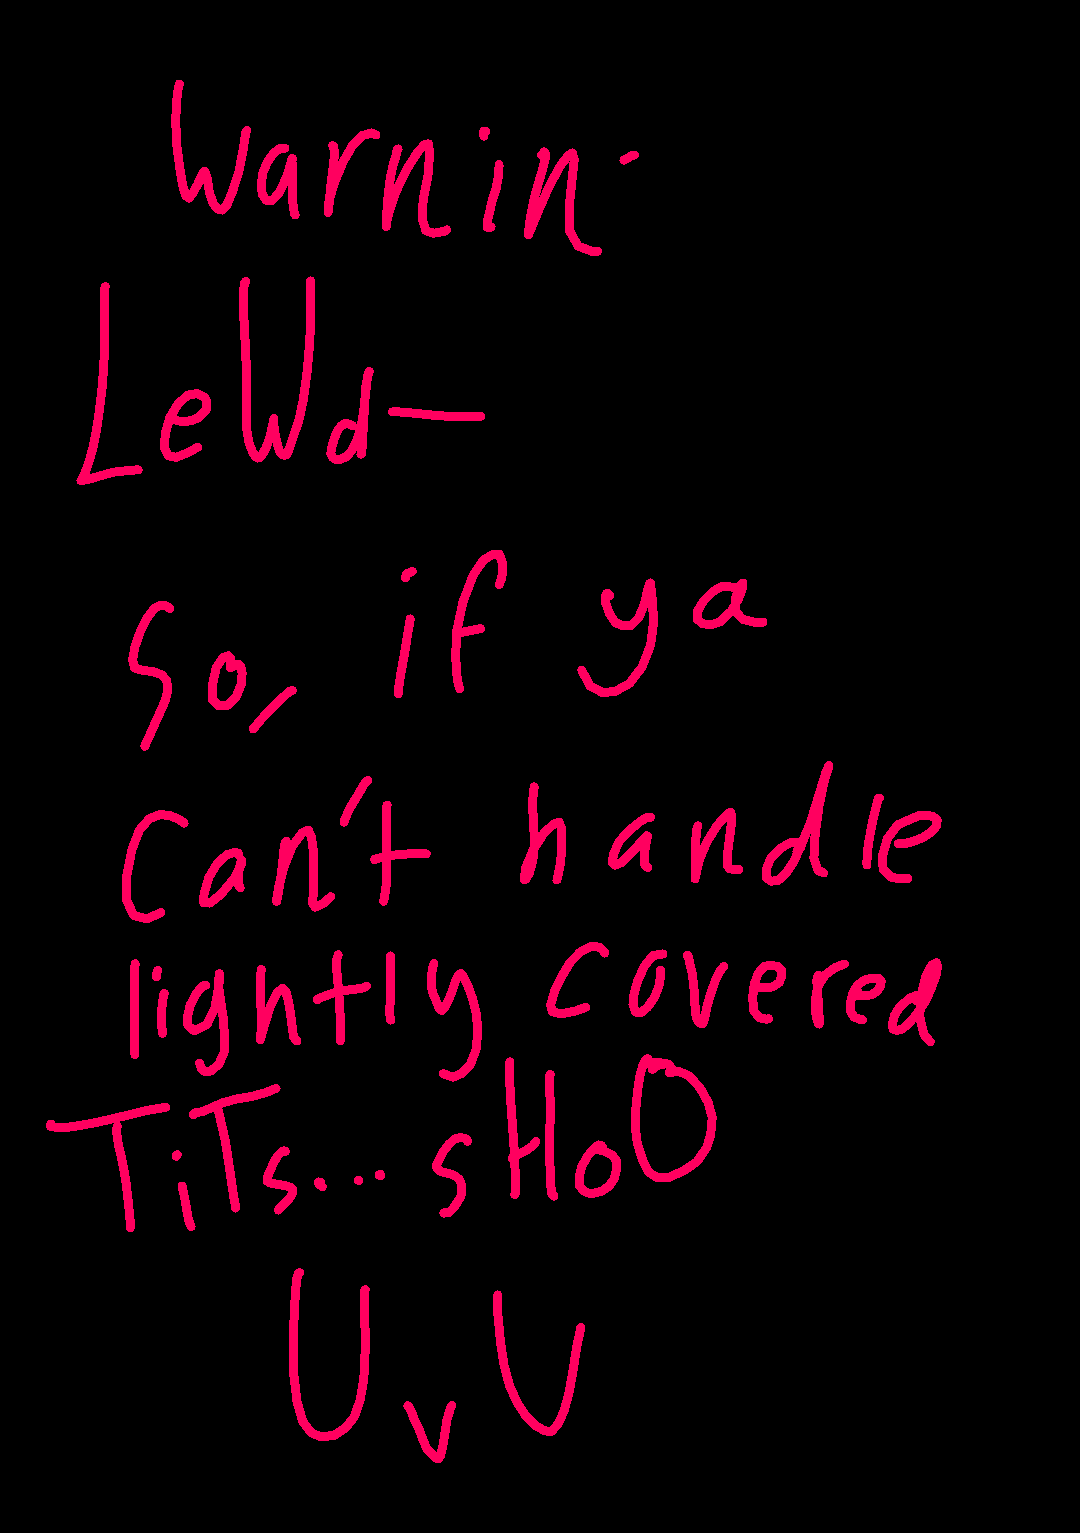 Warnin-
LeWd—
So, if ya
Can't handle
lightly covered
TiTs... sHoO
UvU